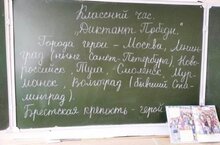 Классный час.
"Диктант Победы."
Города герои - Москва, Ленин-
град (ныне Санкт-Петербург) Ново-
российск, Тула, Смоленск, Мур-
манск, Волгоград (бывший Ста-
линград).
Брестская крепость герой